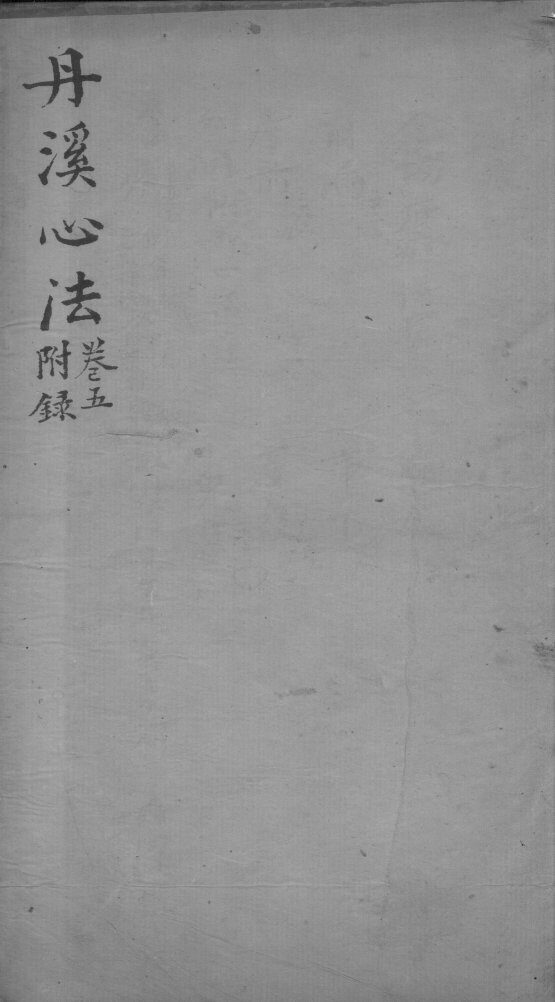 丹溪心法
卷五
附錄